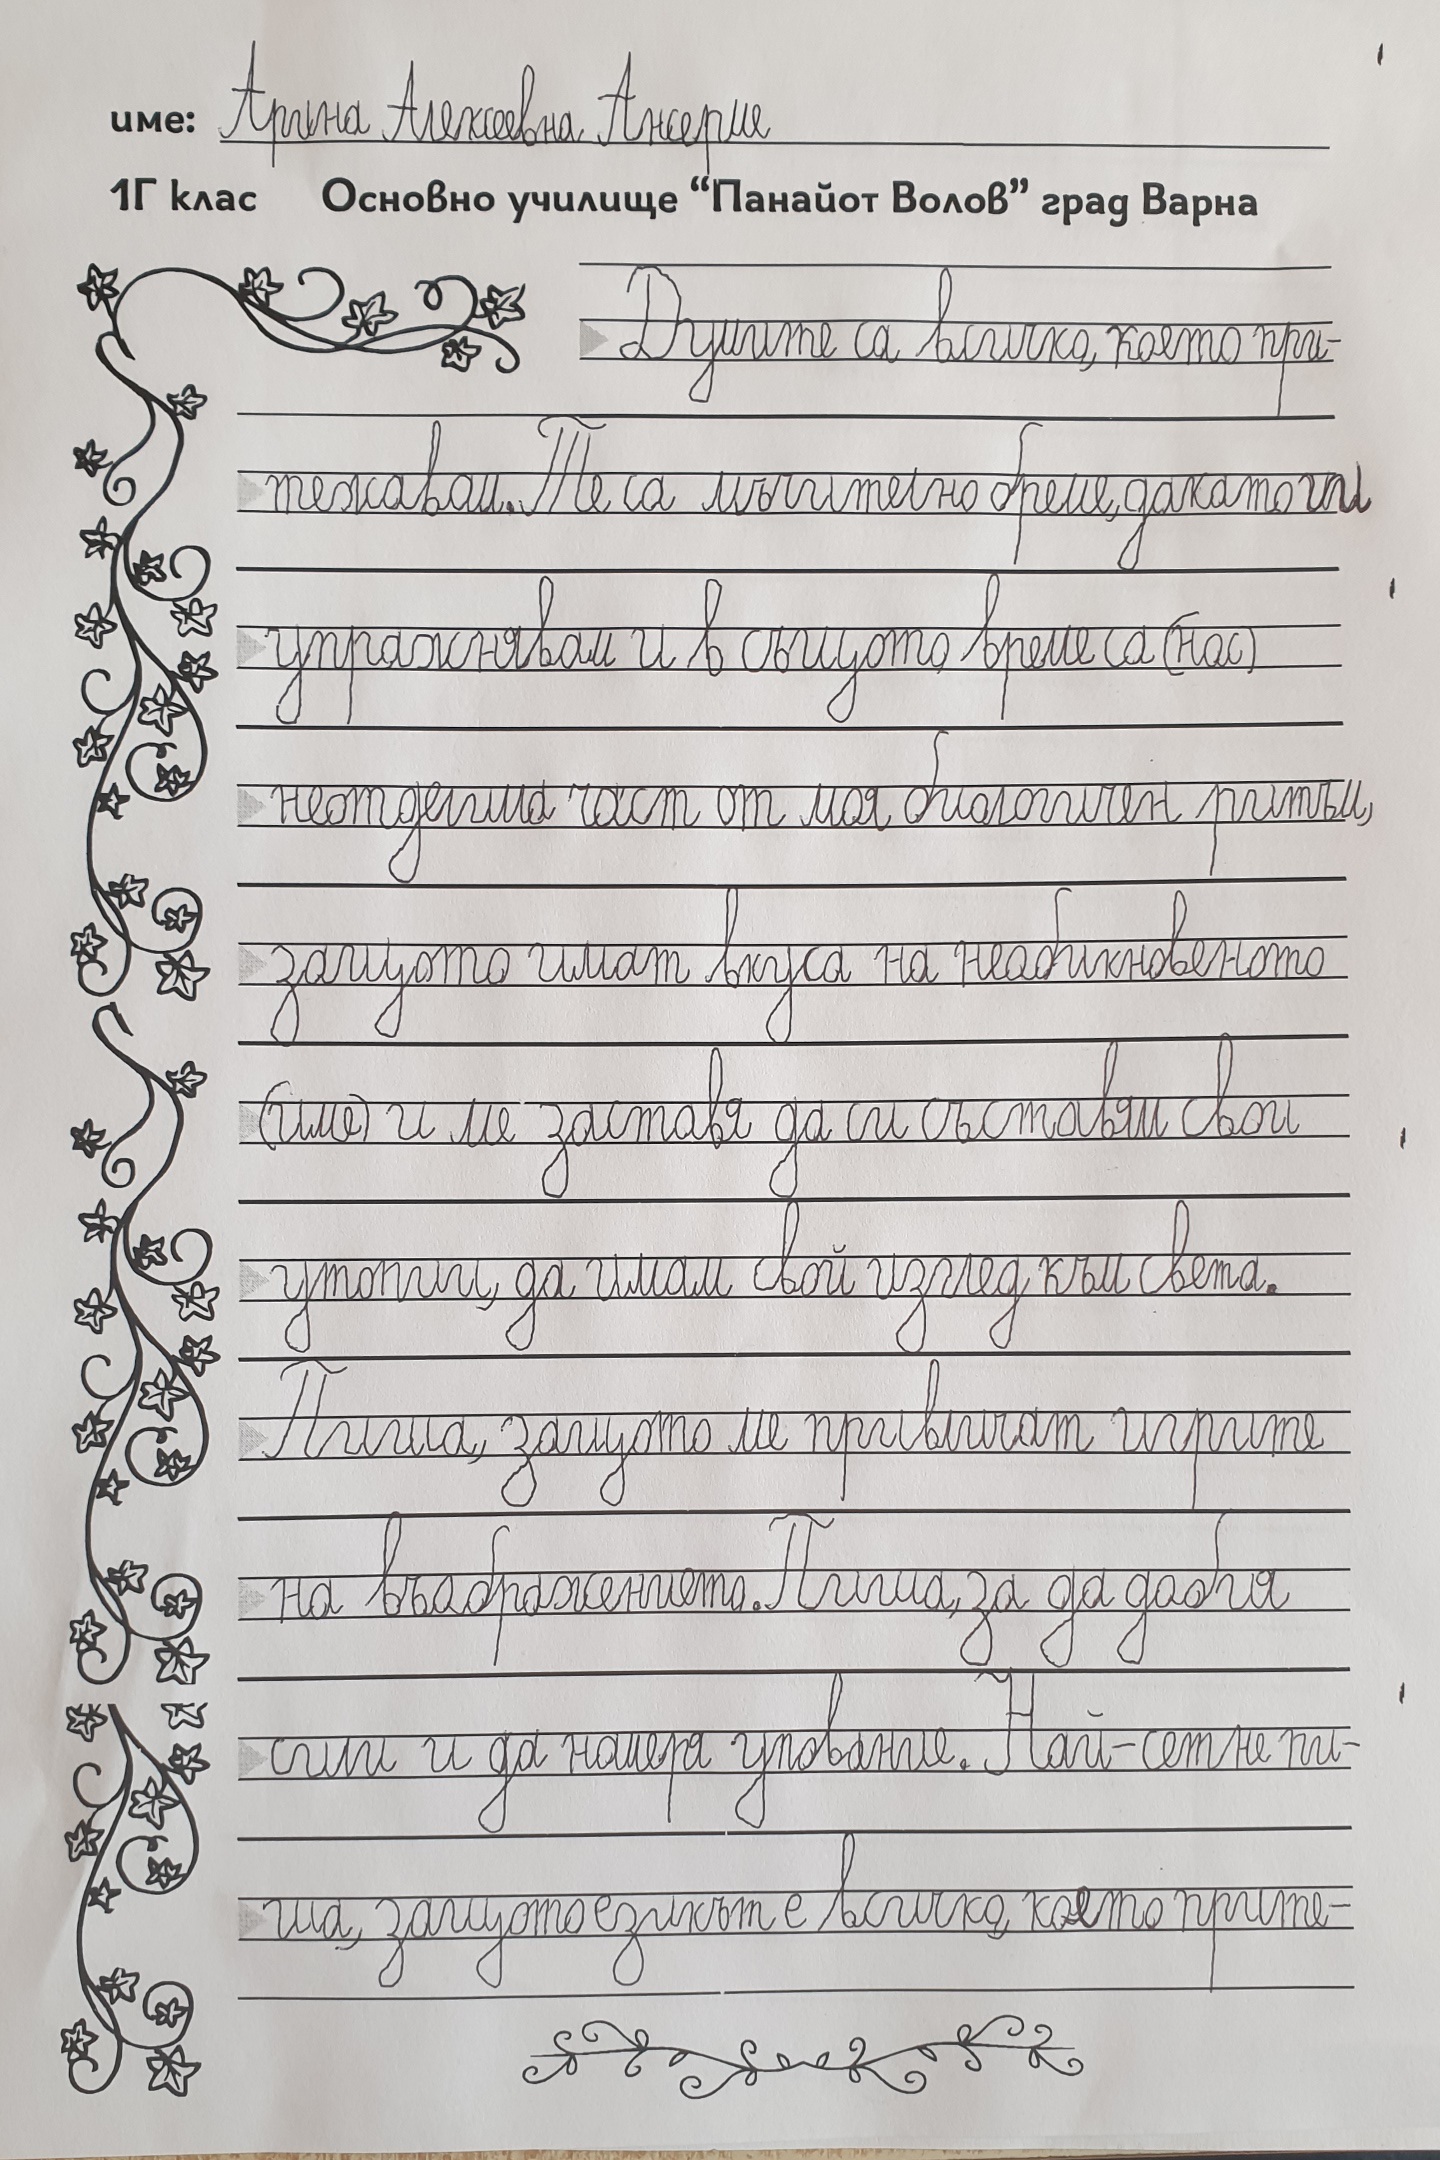 име: Арина Алексеевна Ансерше
1Г клас Основно училище “Панайот Волов” град Варна
Думите са всичко, което при-
тежавам. Те са мъчително бреме, да като ги
упражнявам и в същото време са (нас)
неотделима част от моя биологичен ритъм,
защото имат вкуса на необикновеното
(име) и ме заставя да си съставям свои
утопии, да имам свой изглед към света.
Пиша, защото ме привличат игрите
на въображението. Пиша, за да добия
сили и да намеря упование. Най-сетне пи-
ша, защото езикът е всичко, което прите-